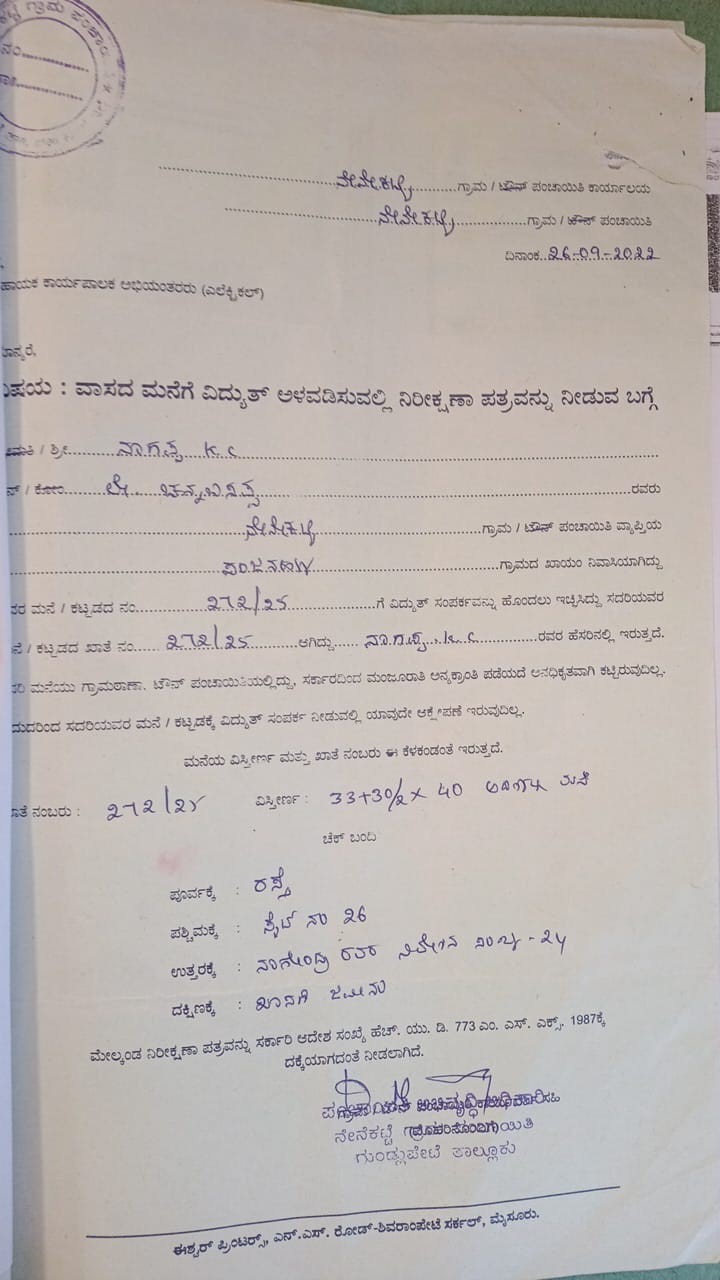 ಗ್ರಾಮ ಪಂಚಾಯಿ
ನಂ
ನೇನೇಕಟ್ಟೆ ಗ್ರಾಮ / ಟೌನ್ ಪಂಚಾಯಿತಿ ಕಾರ್ಯಾಲಯ
ನೇನೇಕಟ್ಟೆ ಗ್ರಾಮ / ಟೌನ್ ಪಂಚಾಯಿತಿ
ದಿನಾಂಕ..26-09-2022
ಹಾಯಕ ಕಾರ್ಯಪಾಲಕ ಅಭಿಯಂತರರು (ಎಲೆಕ್ಟ್ರಿಕಲ್)
ಾನ್ಯರೆ,
ಿಷಯ : ವಾಸದ ಮನೆಗೆ ವಿದ್ಯುತ್ ಅಳವಡಿಸುವಲ್ಲಿ ನಿರೀಕ್ಷಣಾ ಪತ್ರವನ್ನು ನೀಡುವ ಬಗ್ಗೆ
ಮತಿ / ಶ್ರೀ ನಾಗಪ್ಪ K C
ನ್ / ಕೋಂ ಲೇ. ಚನ್ನಬಸಪ್ಪ ರವರು
ನೇನೇಕಟ್ಟೆ ಗ್ರಾಮ / ಟೌನ್ ಪಂಚಾಯಿತಿ ವ್ಯಾಪ್ತಿಯ
ಪಂಜನಹಳ್ಳಿ ಗ್ರಾಮದ ಖಾಯಂ ನಿವಾಸಿಯಾಗಿದ್ದು
ವರ ಮನೆ / ಕಟ್ಟಡದ ನಂ. 272/25 ಗೆ ವಿದ್ಯುತ್ ಸಂಪರ್ಕವನ್ನು ಹೊಂದಲು ಇಚ್ಚಿಸಿದ್ದು ಸದರಿಯವರ
ನೆ / ಕಟ್ಟಡದ ಖಾತೆ ನಂ. 272/25 ಆಗಿದ್ದು ನಾಗಪ್ಪ K C ರವರ ಹೆಸರಿನಲ್ಲಿ ಇರುತ್ತದೆ.
ರಿ ಮನೆಯು ಗ್ರಾಮಠಾಣಾ, ಟೌನ್ ಪಂಚಾಯಿತಿಯಲ್ಲಿದ್ದು, ಸರ್ಕಾರದಿಂದ ಮಂಜೂರಾತಿ ಅನ್ಯಕ್ರಾಂತಿ ಪಡೆಯದೆ ಅನಧಿಕೃತವಾಗಿ ಕಟ್ಟಿರುವುದಿಲ್ಲ.
ದುದರಿಂದ ಸದರಿಯವರ ಮನೆ / ಕಟ್ಟಡಕ್ಕೆ ವಿದ್ಯುತ್ ಸಂಪರ್ಕ ನೀಡುವಲ್ಲಿ ಯಾವುದೇ ಆಕ್ಷೇಪಣೆ ಇರುವುದಿಲ್ಲ.
ಮನೆಯ ವಿಸ್ತೀರ್ಣ ಮತ್ತು ಖಾತೆ ನಂಬರು ಈ ಕೆಳಕಂಡಂತೆ ಇರುತ್ತದೆ.
ಾತೆ ನಂಬರು : 272/25 ವಿಸ್ತೀರ್ಣ : 33+30/2 X 40 ಅಡಿಗಳು ಮನೆ
ಚೆಕ್ ಬಂದಿ
ಪೂರ್ವಕ್ಕೆ : ರಸ್ತೆ
ಪಶ್ಚಿಮಕ್ಕೆ : ಸೈಟ್ ನಂ 26
ಉತ್ತರಕ್ಕೆ : ನಾಗೇಂದ್ರ ರವರ ನಿವೇಶನ ನಂಬ್ರ - 24
ದಕ್ಷಿಣಕ್ಕೆ : ಖಾಸಗಿ ಜಮೀನು
ಮೇಲ್ಕಂಡ ನಿರೀಕ್ಷಣಾ ಪತ್ರವನ್ನು ಸರ್ಕಾರಿ ಆದೇಶ ಸಂಖ್ಯೆ ಹೆಚ್. ಯು. ಡಿ. 773 ಎಂ. ಎಸ್. ಎಕ್ಸ್. 1987ಕ್ಕೆ
ದಕ್ಕೆಯಾಗದಂತೆ ನೀಡಲಾಗಿದೆ.
ಅಭಿವೃದ್ಧಿ ಅಧಿಕಾರಿ ಸಹಿ
ನೇನೆಕಟ್ಟೆ (ಮೊಹರಿನೊಂದಿಗೆ)
ಗುಂಡ್ಲುಪೇಟೆ ತಾಲ್ಲೂಕು
ಈಶ್ವರ್ ಪ್ರಿಂಟರ್ಸ್, ಎನ್.ಎಸ್. ರೋಡ್-ಶಿವರಾಂಪೇಟೆ ಸರ್ಕಲ್, ಮೈಸೂರು.